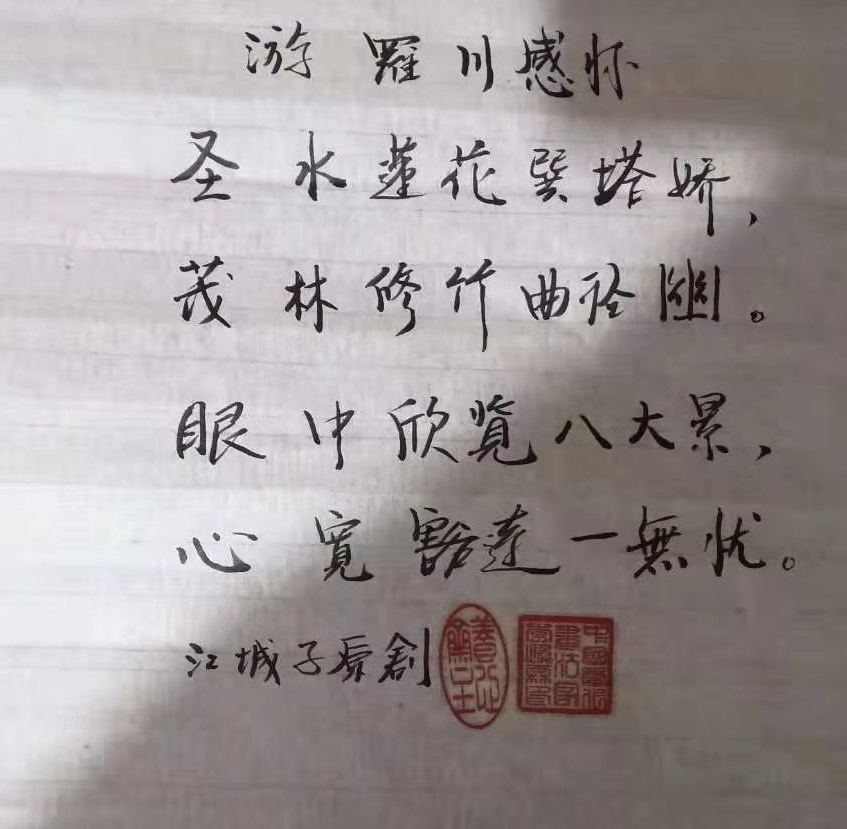 游羅川感怀
圣水莲花巽塔娇，
茂林修竹曲径幽。
眼中欣覧八大景，
心寛豁達一無忧。
江城子原創